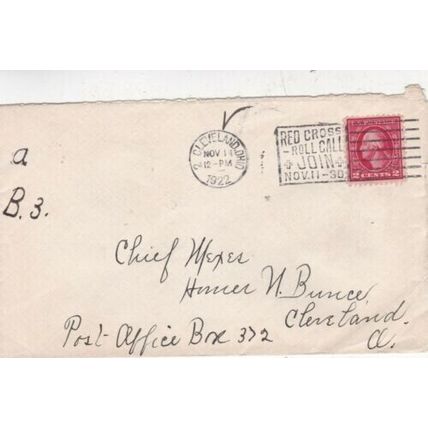 a
B.3.
CLEVELAND, OHIO
NOV 1
12-PM
1922
RED CROSS
ROLL CALL
JOIN
NOV. 11-30
2 CENTS 2
Chief
Homer N. Bunce,
Post Office Box 372
Cleveland.
O.